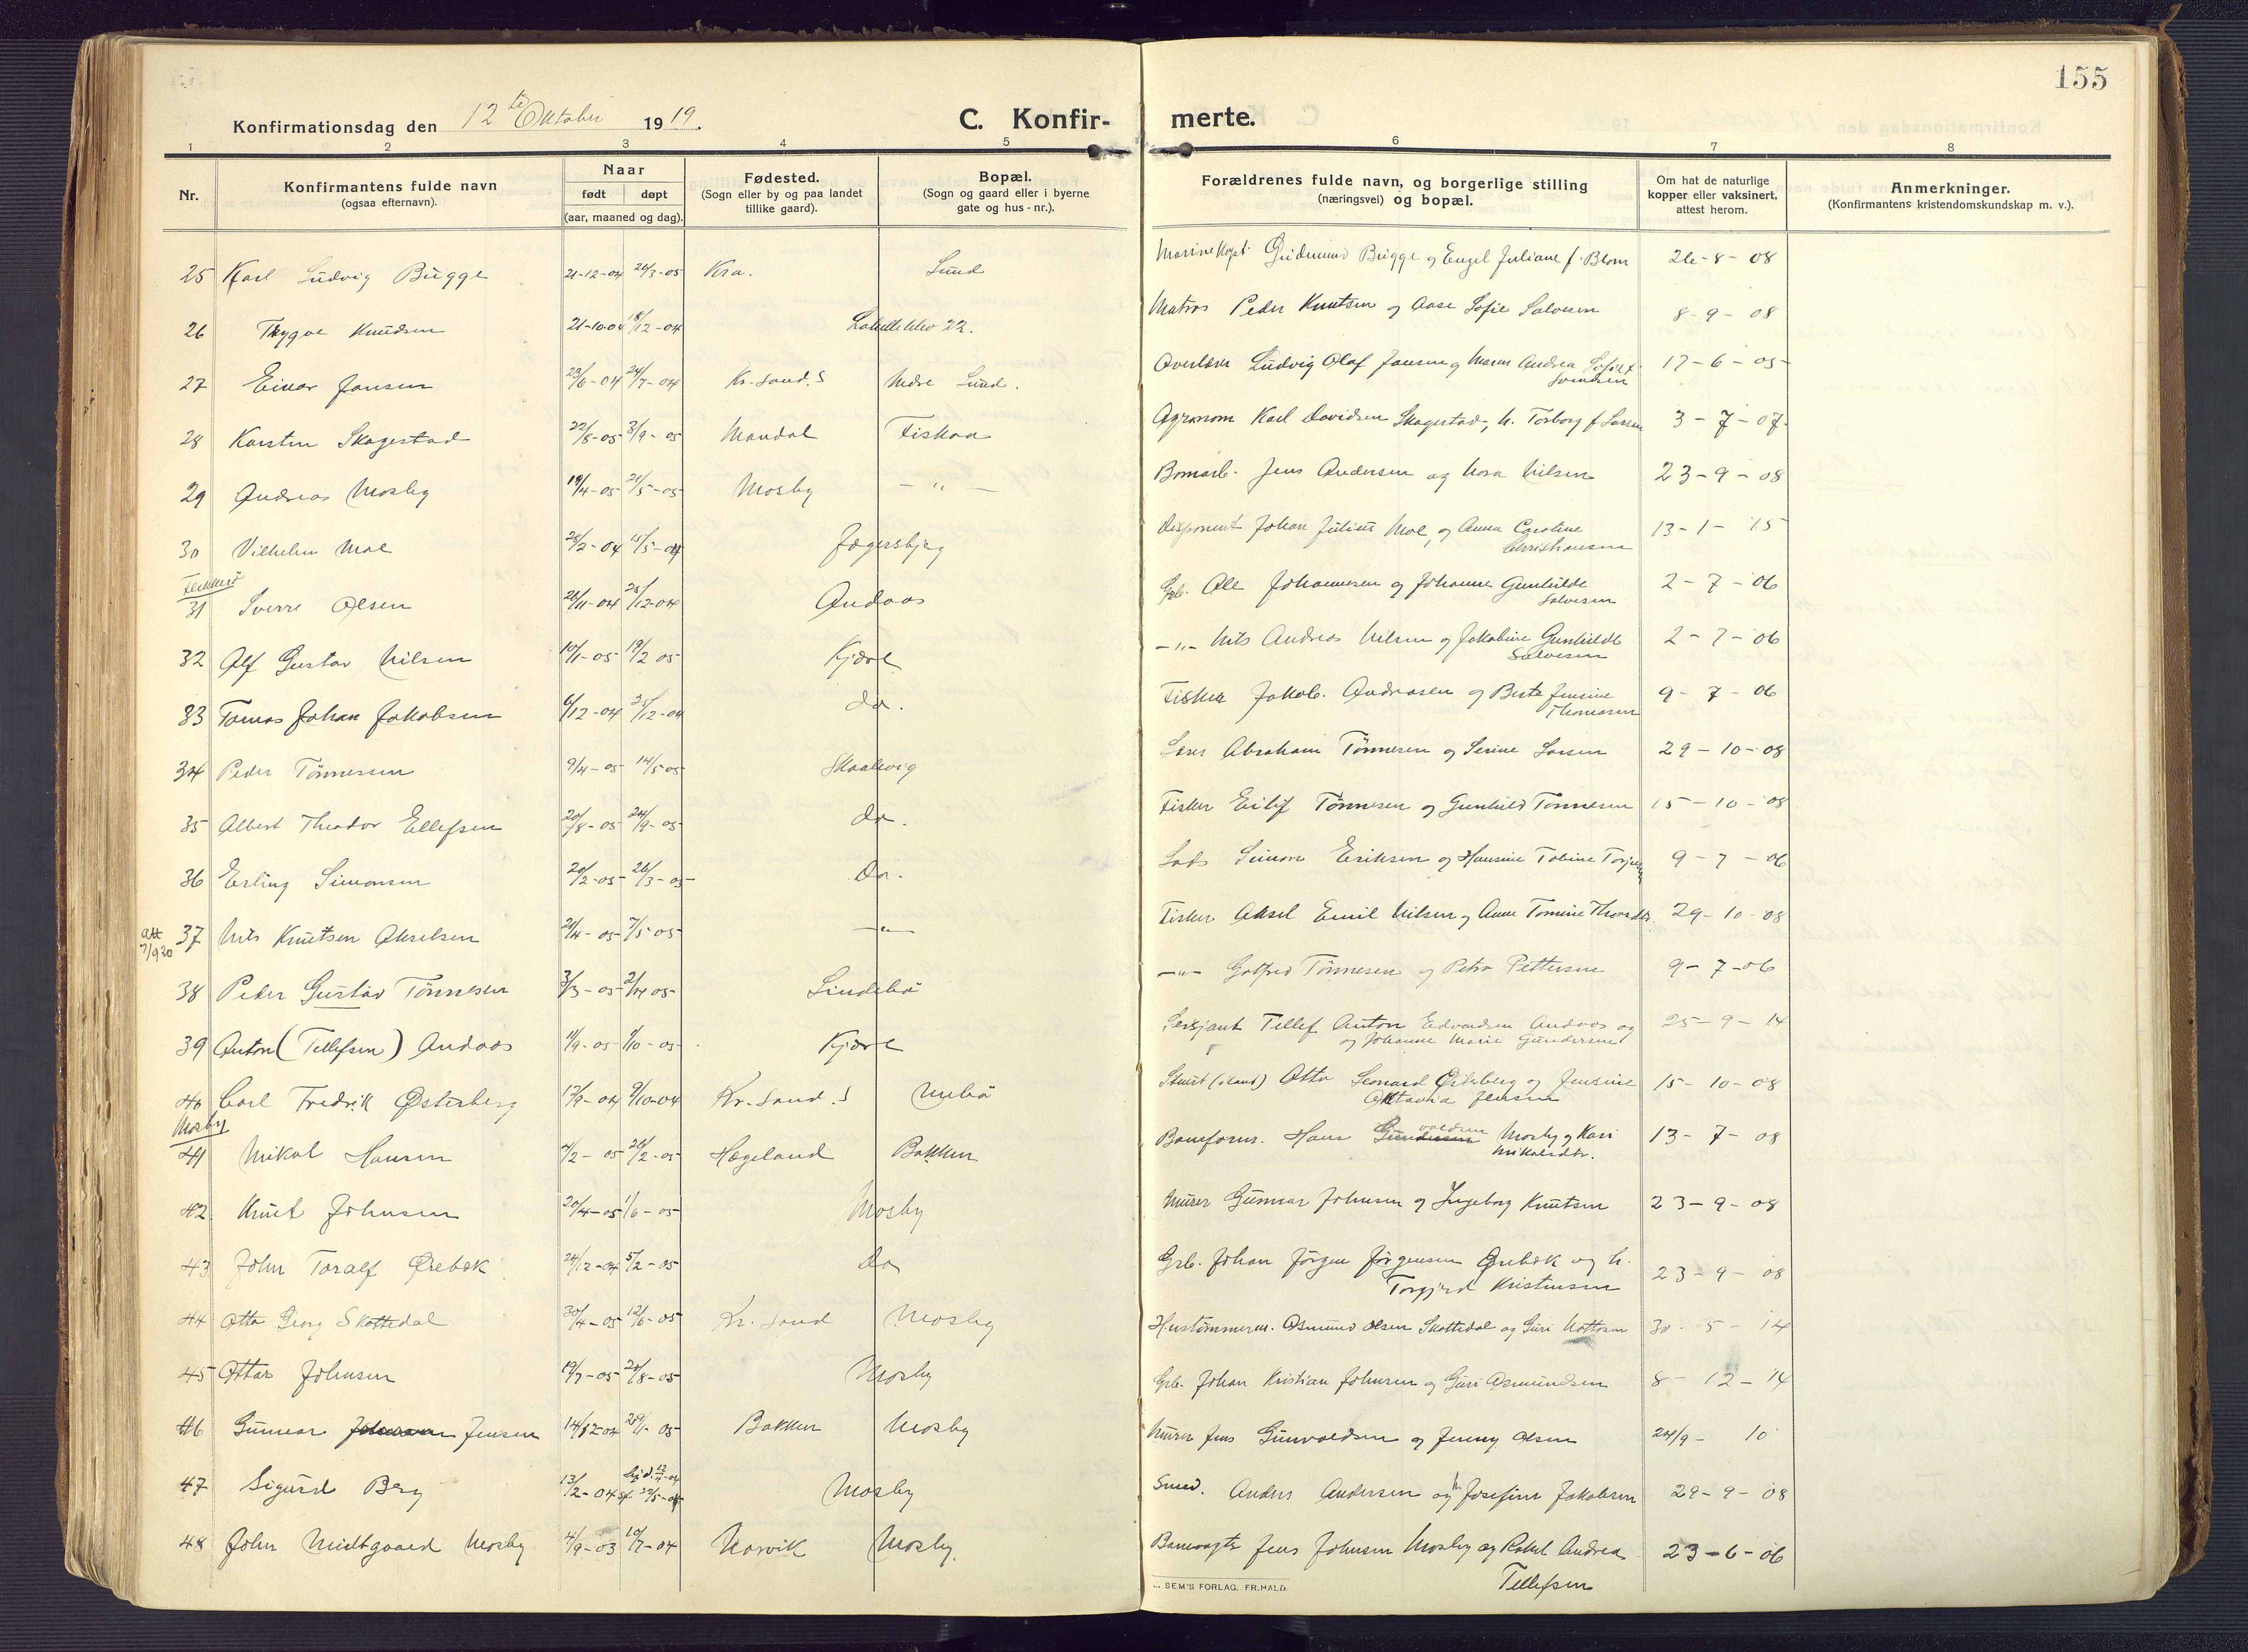 155
Konfirmationsdag den 12te Oktober 1919.
C. Konfir- merte.
1 2 3 4 5 6 7 8
Nr. Konfirmantens fulde navn (ogsaa efternavn). Naar født døpt (aar, maaned og dag). Fødested. (Sogn eller by og paa landet tillike gaard). Bopæl. (Sogn og gaard eller i byerne gate og hus-nr.). Forældrenes fulde navn, og borgerlige stilling (næringsvei) og bopæl. Om hat de naturlige kopper eller vaksinert, attest herom. Anmerkninger. (Konfirmantens kristendomskundskap m. v.).
25 Karl Ludvig Bugge 21-12-04 26/3-05 Kra. Lund Marinekapt. Gudmund Bugge og Engel Juliane f. Blom 26-8-08
26 Trygve Knudsen 21-10-04 18/12-04 22. Matros Peder Knutsen og Aase Sofie Salvesen 8-9-08
27 Einar Jansen 23/6-04 24/7-04 Kr.sand. S Indre Lund. Overlærer Ludvig Olaf Jansen og Maren Andrea Sofie f. 17-6-05
28 Karsten Skagestad 22/8-05 3/9-05 Mandal Fiskaa Agronom Karl Davidsen Skagestad, h. Torborg f Larsen 3-7-07.
29 Andreas Mosby 19/4-05 21/5-05 Mosby - " - Jens Andersen og Nora Nilsen 23-9-08
30 Vilhelm Moe 28/2-04 15/5-04 Jegersbjerg Disponent Johan Julius Moe, og Anna Caroline Christiansen 13-1-15
Flekkerø
31 Sverre Olsen 21/11-04 25/12-04 Andaas Grb. Ole Johannesen og Johanne Gunhilde Salvesen 2-7-06
32 Alf Gustav Nilsen 10/1-05 19/2 05 Kjære -"- Nils Andreas Nilsen og Jakobine Gunhilde Salvesen 2-7-06
33 Tomas Johan Jakobsen 6/12-04 25/12-04 do. Fisker Jakob Andreasen og Berte Jensine Thomasen 9-7-06
34 Peder Tönnessen 9/4-05 14/5 05 Skaalevig Abraham Tönnesen og Serine Larsen 29-10-08
35 Albert Theodor Ellefsen 20/8-05 24/9-05 do. Fisker Eilif Tönnesen og Gunhild Tönnesen 15-10-08
36 Erling Simonsen 20/2-05 26/3-05 Do. Lods Simon Eriksen og Hansine Tobine 9-7-06
att 7/9 20
37 Nils Knutsen Akselsen 21/4-05 7/5-05 -"- Fisker Aksel Emil Nilsen og Anne Tomine 29-10-08
38 Peder Gustav Tönnesen 3/3-05 2/4 05 Lindebö -"- Gotfred Tönnesen og Petra Pettersen 9-7-06
39 Anton (Tellefsen) Andaas 11/9-05 1/10-05 Kjære Sersjant Tellef Anton Edvardsen Andaas og og Johanne Marie Gundersen 25-9-14
40 Carl Fredrik Østerberg 17/9-04 9/10-04 Kr.sand. S Otto Leonard Østerberg og Jensine Oktavia Jensen 15-10-08
Mosby
41 Mikal Hansen 4/2-05 26/2-05 Hægeland Bakken Baneform. Hans Gundersen Mosby og Kari Mikalsdtr. 13-7-08
42 Knut Johnsen 20/4-05 1/6-05 Mosby Murer Gunnar Johnsen og Ingeborg Knutsen 23-9-08
43 John Toralf Ørebæk 24/12-04 5/2-05 Do Grb. Johan Jörgen Jörgensen Ørebæk og h. Torgjerd Kristensen 23-9-08
44 Otto Georg Skottedal 30/4-05 12/6-05 Kr.sand Mosby Hustömmerm. Osmund Olsen Skottedal og Guri 30-5-14
45 Ottar Johnsen 19/7-05 20/8-05 Mosby Grb. Johan Kristian Johnsen og Guri Osmundsen 8-12-14
46 Gunnar Jensen 14/12-04 29/1-05 Bakken Mosby Murer Jens Gunvaldsen og Jenny Olsen 24/9-10
47 Sigurd Berg 13/2-04 22/5-04 Mosby Smed. Anders Andersen og h Josefine Jakobsen 29-9-08
48 John Midtgaard Mosby 4/9-03 10/7-04 Narvik Mosby. Banevogter Jens Johnsen Mosby og Rakel Andrea Tellefsen 23-6-06
SEM'S FORLAG. FR.HALD.